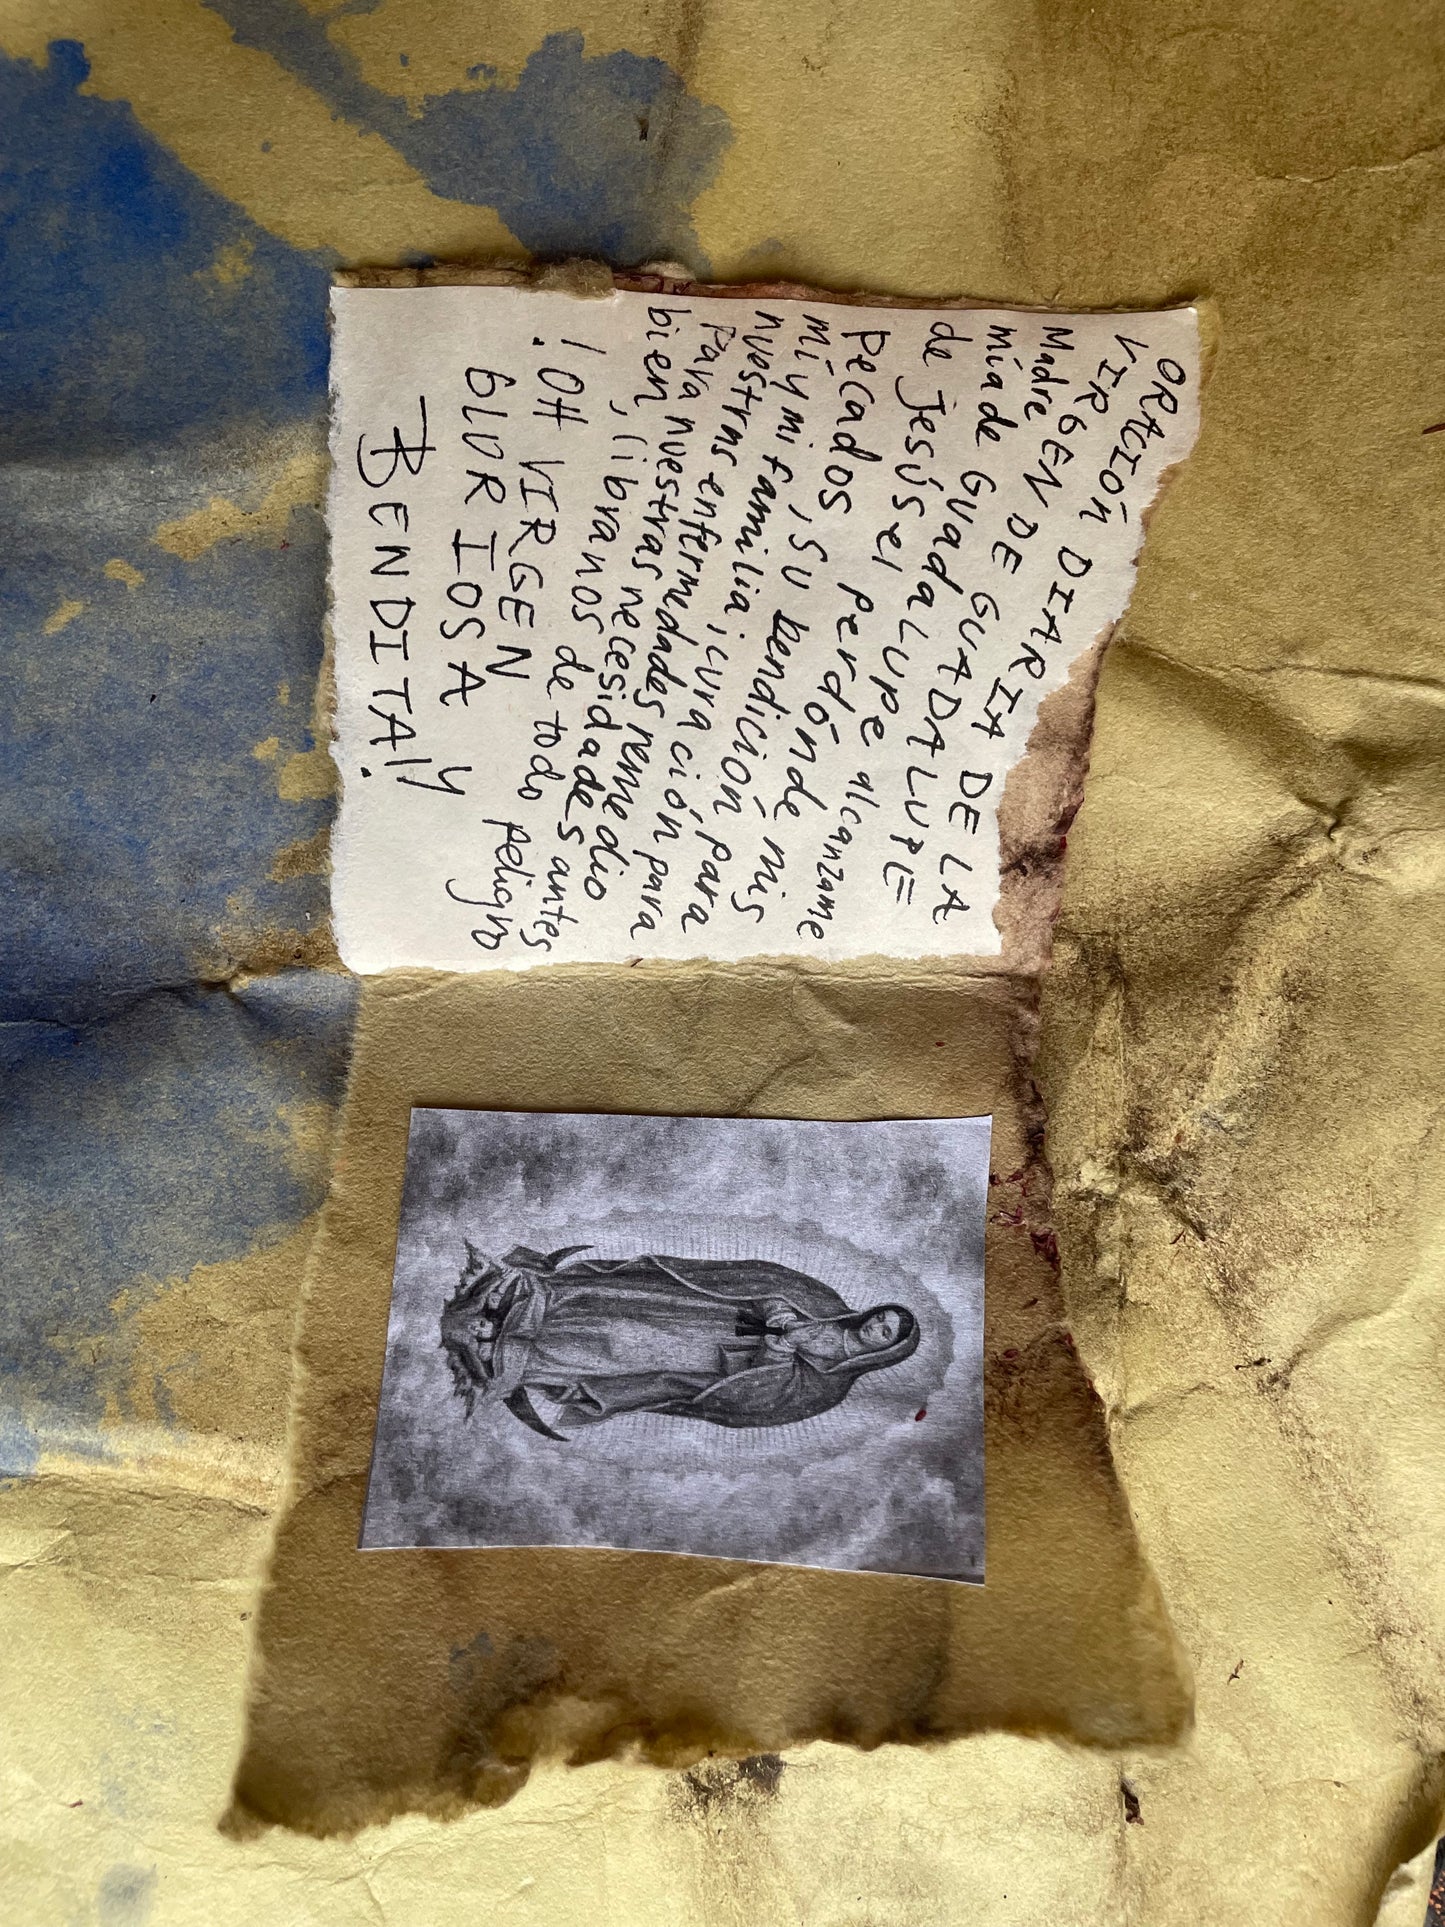 ORACIÓN DIARIA DE LA
VIRGEN DE GUADALUPE
Madre
mía de Guadalupe alcanzame
de Jesús el perdónde mis
pecados, su bendición para
mí y mi familia, curación para
nuestras enfermedades remedio
para nuestras necesidades antes
bien, libranos de todo peligro
! OH VIRGEN
GLORIOSA Y
BENDITA!